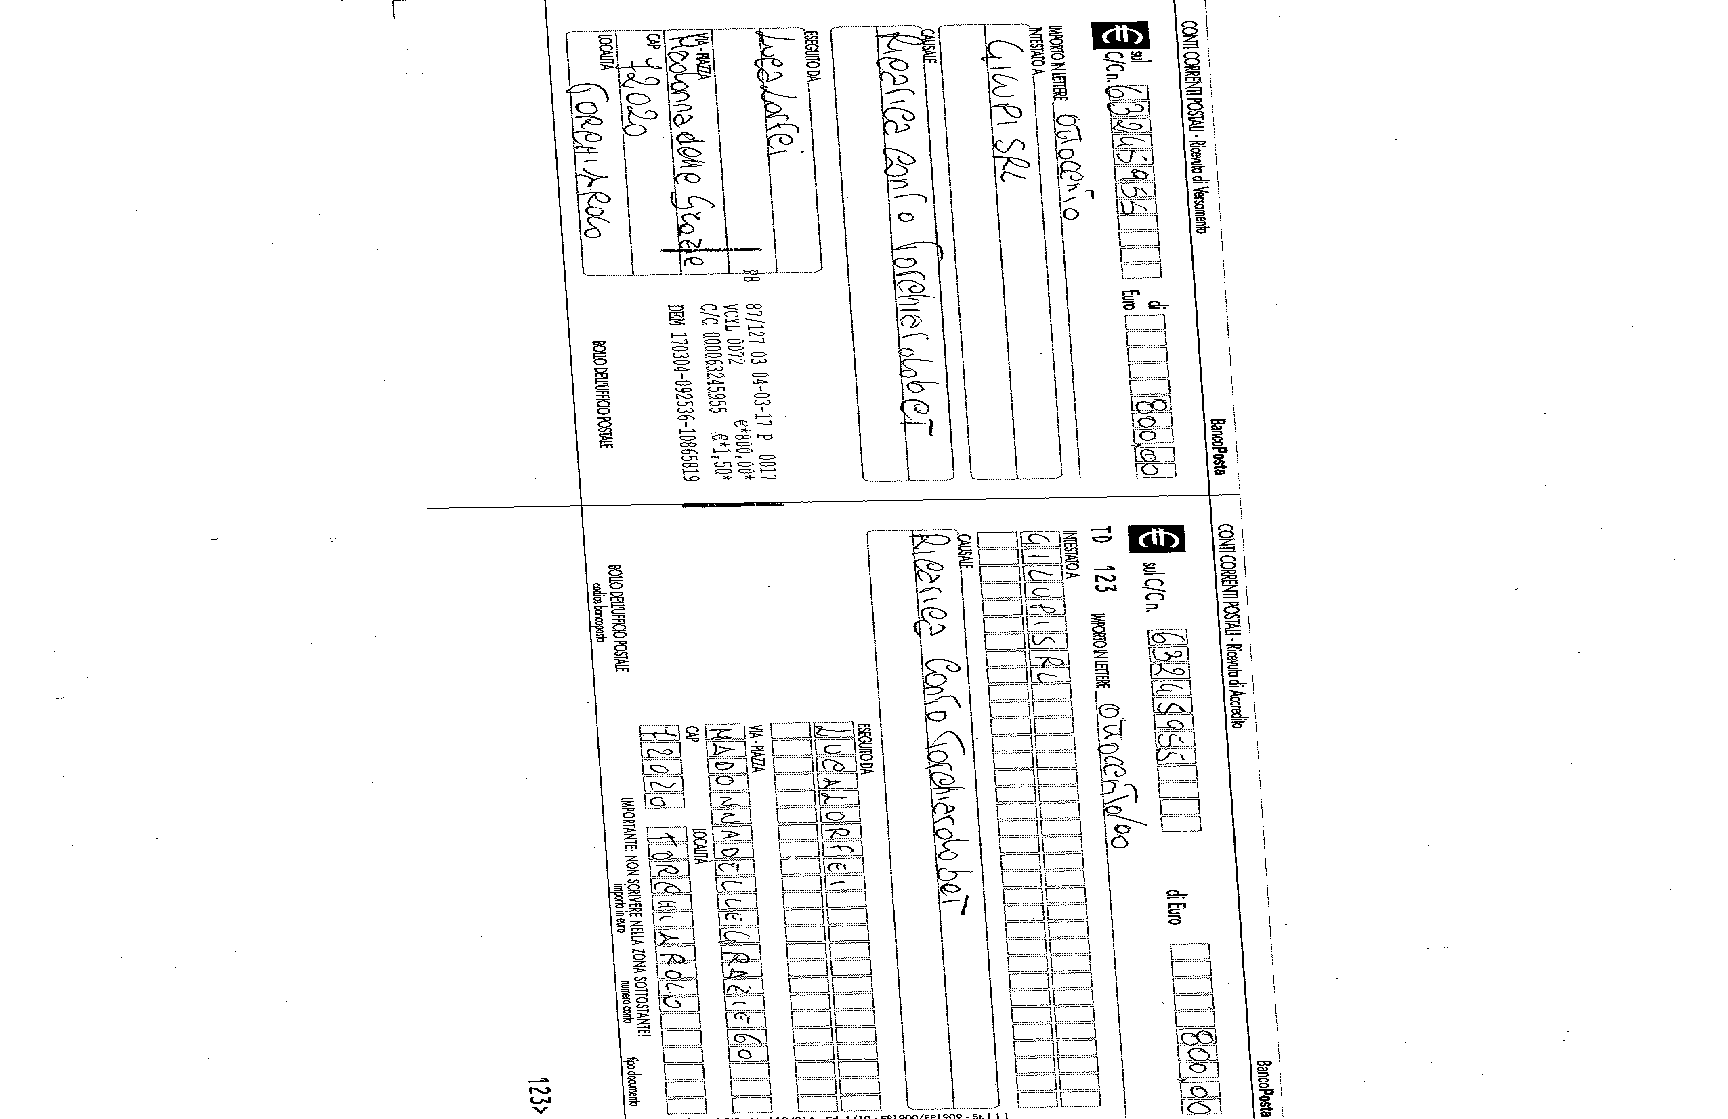 CONTI CORRENTI POSTALI - Ricevuta di Versamento
BancoPosta
€ sul C/C n. 63245955 di Euro 800,00
IMPORTO IN LETTERE Ottocento
INTESTATO A
GILUPI SRL
CAUSALE
Ricarica conto Torchiarolobet
ESEGUITO DA
Luca Lorfei
VIA - PIAZZA
Madonna delle Grazie
CAP 72020
LOCALITÀ
TORCHIAROLO
87/127 03 04-03-17 P 0017
VCYL 0072 €*800,00*
C/C 000063245955 €*1,50*
DEM 170304-092536-10865819
BOLLO DELL'UFFICIO POSTALE
CONTI CORRENTI POSTALI - Ricevuta di Accredito
BancoPosta
€ sul C/C n. 63245955 di Euro 800,00
TD 123 IMPORTO IN LETTERE Ottocento/00
INTESTATO A
GILUPI SRL
CAUSALE
Ricarica conto Torchiarolobet
ESEGUITO DA
LUCA LORFEI
VIA - PIAZZA
MADONNA DELLE GRAZIE 60
CAP LOCALITÀ
72020 TORCHIAROLO
BOLLO DELL'UFFICIO POSTALE
codice bancoposta
IMPORTANTE: NON SCRIVERE NELLA ZONA SOTTOSTANTE!
importo in euro numero conto tipo documento
123>